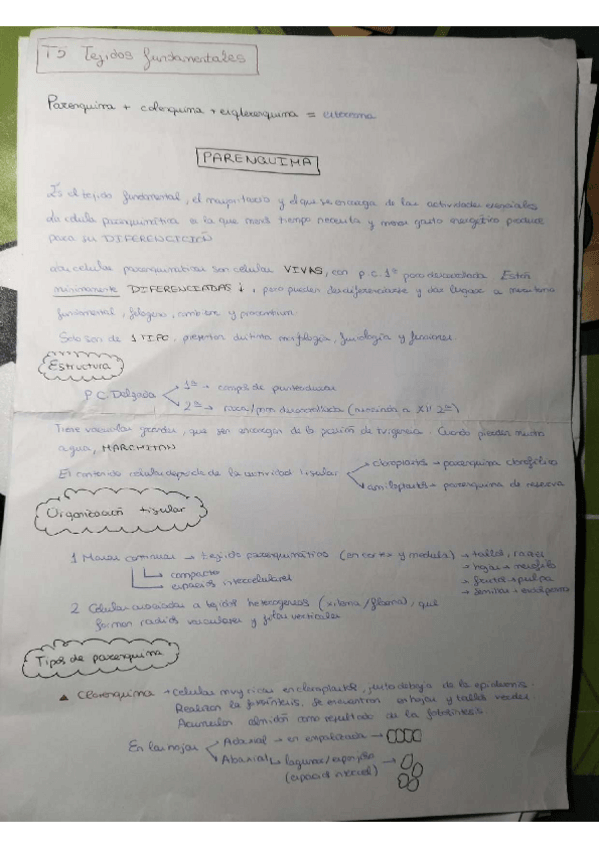 T5 Tejidos fundamentales
Parenquima + colenquima + esglerenquima =
PARENQUIMA
Es el tejido fundamental, el mayoritario y el que se encarga de las actividades esenciales
La celula parenquimática es la que menos tiempo necesita y menos gasto energético produce
para su DIFERENCICIÓN
Las celulas parenquimaticas son celulas VIVAS, con p.c. 1ª poco desarrollada. Están
minimamente DIFERENCIADAS ↓, pero pueden desdiferenciarse y dar lugar a meristemo
fundamental, felogeno, cambium y procambium.
Solo son de 1 TIPO, presentan distinta morfología, fisiología y funciones.
Estructura
P.C. Delgada
1ª → campos de punteaduras
2ª → poca/
Tiene vacuolas grandes, que se encargan de la presión de turgencia. Cuando pierden mucha
agua, MARCHITAN
El contenido celular depende de la actividad tisular
cloroplastos → parenquima clorofílico
amiloplastos → parenquima de reserva
Organización tisular
1 Masas continuas → tejido parenquimático (en cortex y medula) → tallos, raices
→ hojas → mesofilo
→ frutos → pulpa
→ semillas → endospermo
compacto
espacios intercelulares
2 Celulas asociadas a tejidos heterogeneos (xilema/floema), que
forman radios vasculares y filas verticales
Tipos de parenquima
▲ Clorenquima → Celulas muy ricas en cloroplastos, justo debajo de la epidermis.
Realizan la fotosintesis. Se encuentran en hojas y tallos verdes.
Acumulan almidón como resultado de la fotosintesis.
En las hojas
Adaxial → en empalizada →
Abaxial → lagunar/esponjoso →
(espacios intercel)